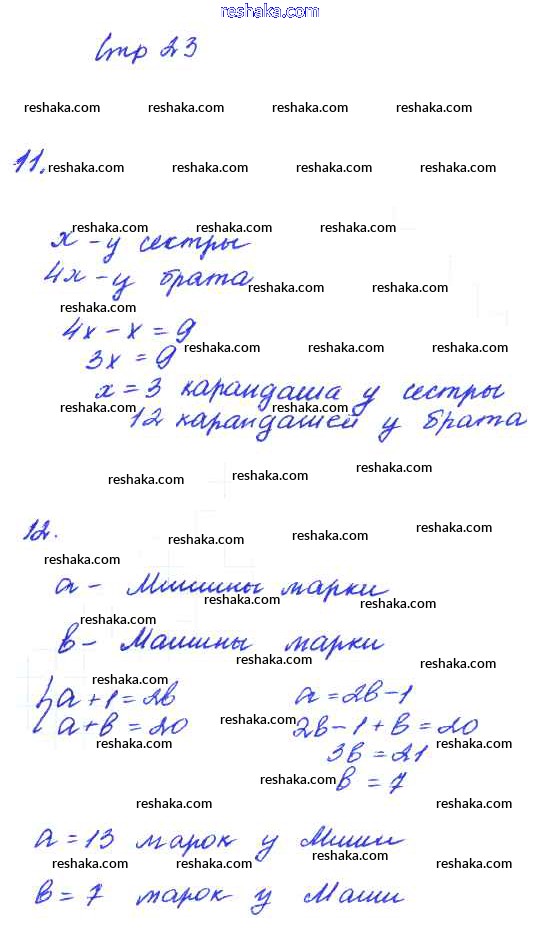 reshaka.com
Стр 23
reshaka.com reshaka.com reshaka.com reshaka.com
11. reshaka.com reshaka.com reshaka.com reshaka.com
reshaka.com reshaka.com reshaka.com
х - у сестры
4х - у брата
reshaka.com reshaka.com
reshaka.com
4х - х = 9
3х = 9
reshaka.com reshaka.com reshaka.com
х = 3 карандаша у сестры
reshaka.com reshaka.com
12 карандашей у брата
reshaka.com reshaka.com reshaka.com
12.
reshaka.com reshaka.com reshaka.com
reshaka.com
а - Мишины марки
reshaka.com reshaka.com
reshaka.com
в - Машины марки
reshaka.com reshaka.com
reshaka.com
{ а + 1 = 2в а = 2в - 1
а + в = 20 2в - 1 + в = 20
reshaka.com reshaka.com reshaka.com
3в = 21
reshaka.com reshaka.com
в = 7
reshaka.com reshaka.com
а = 13 марок у Миши
reshaka.com reshaka.com reshaka.com reshaka.com
в = 7 марок у Маши